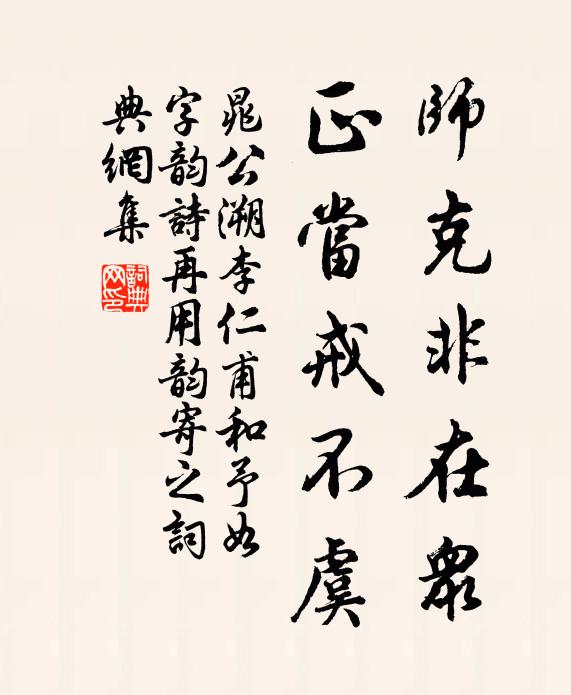 師克非在衆
正當戒不虞
晁公溯李仁甫和予如
字韵詩再用韵寄之詞
典網集
詞典
网印